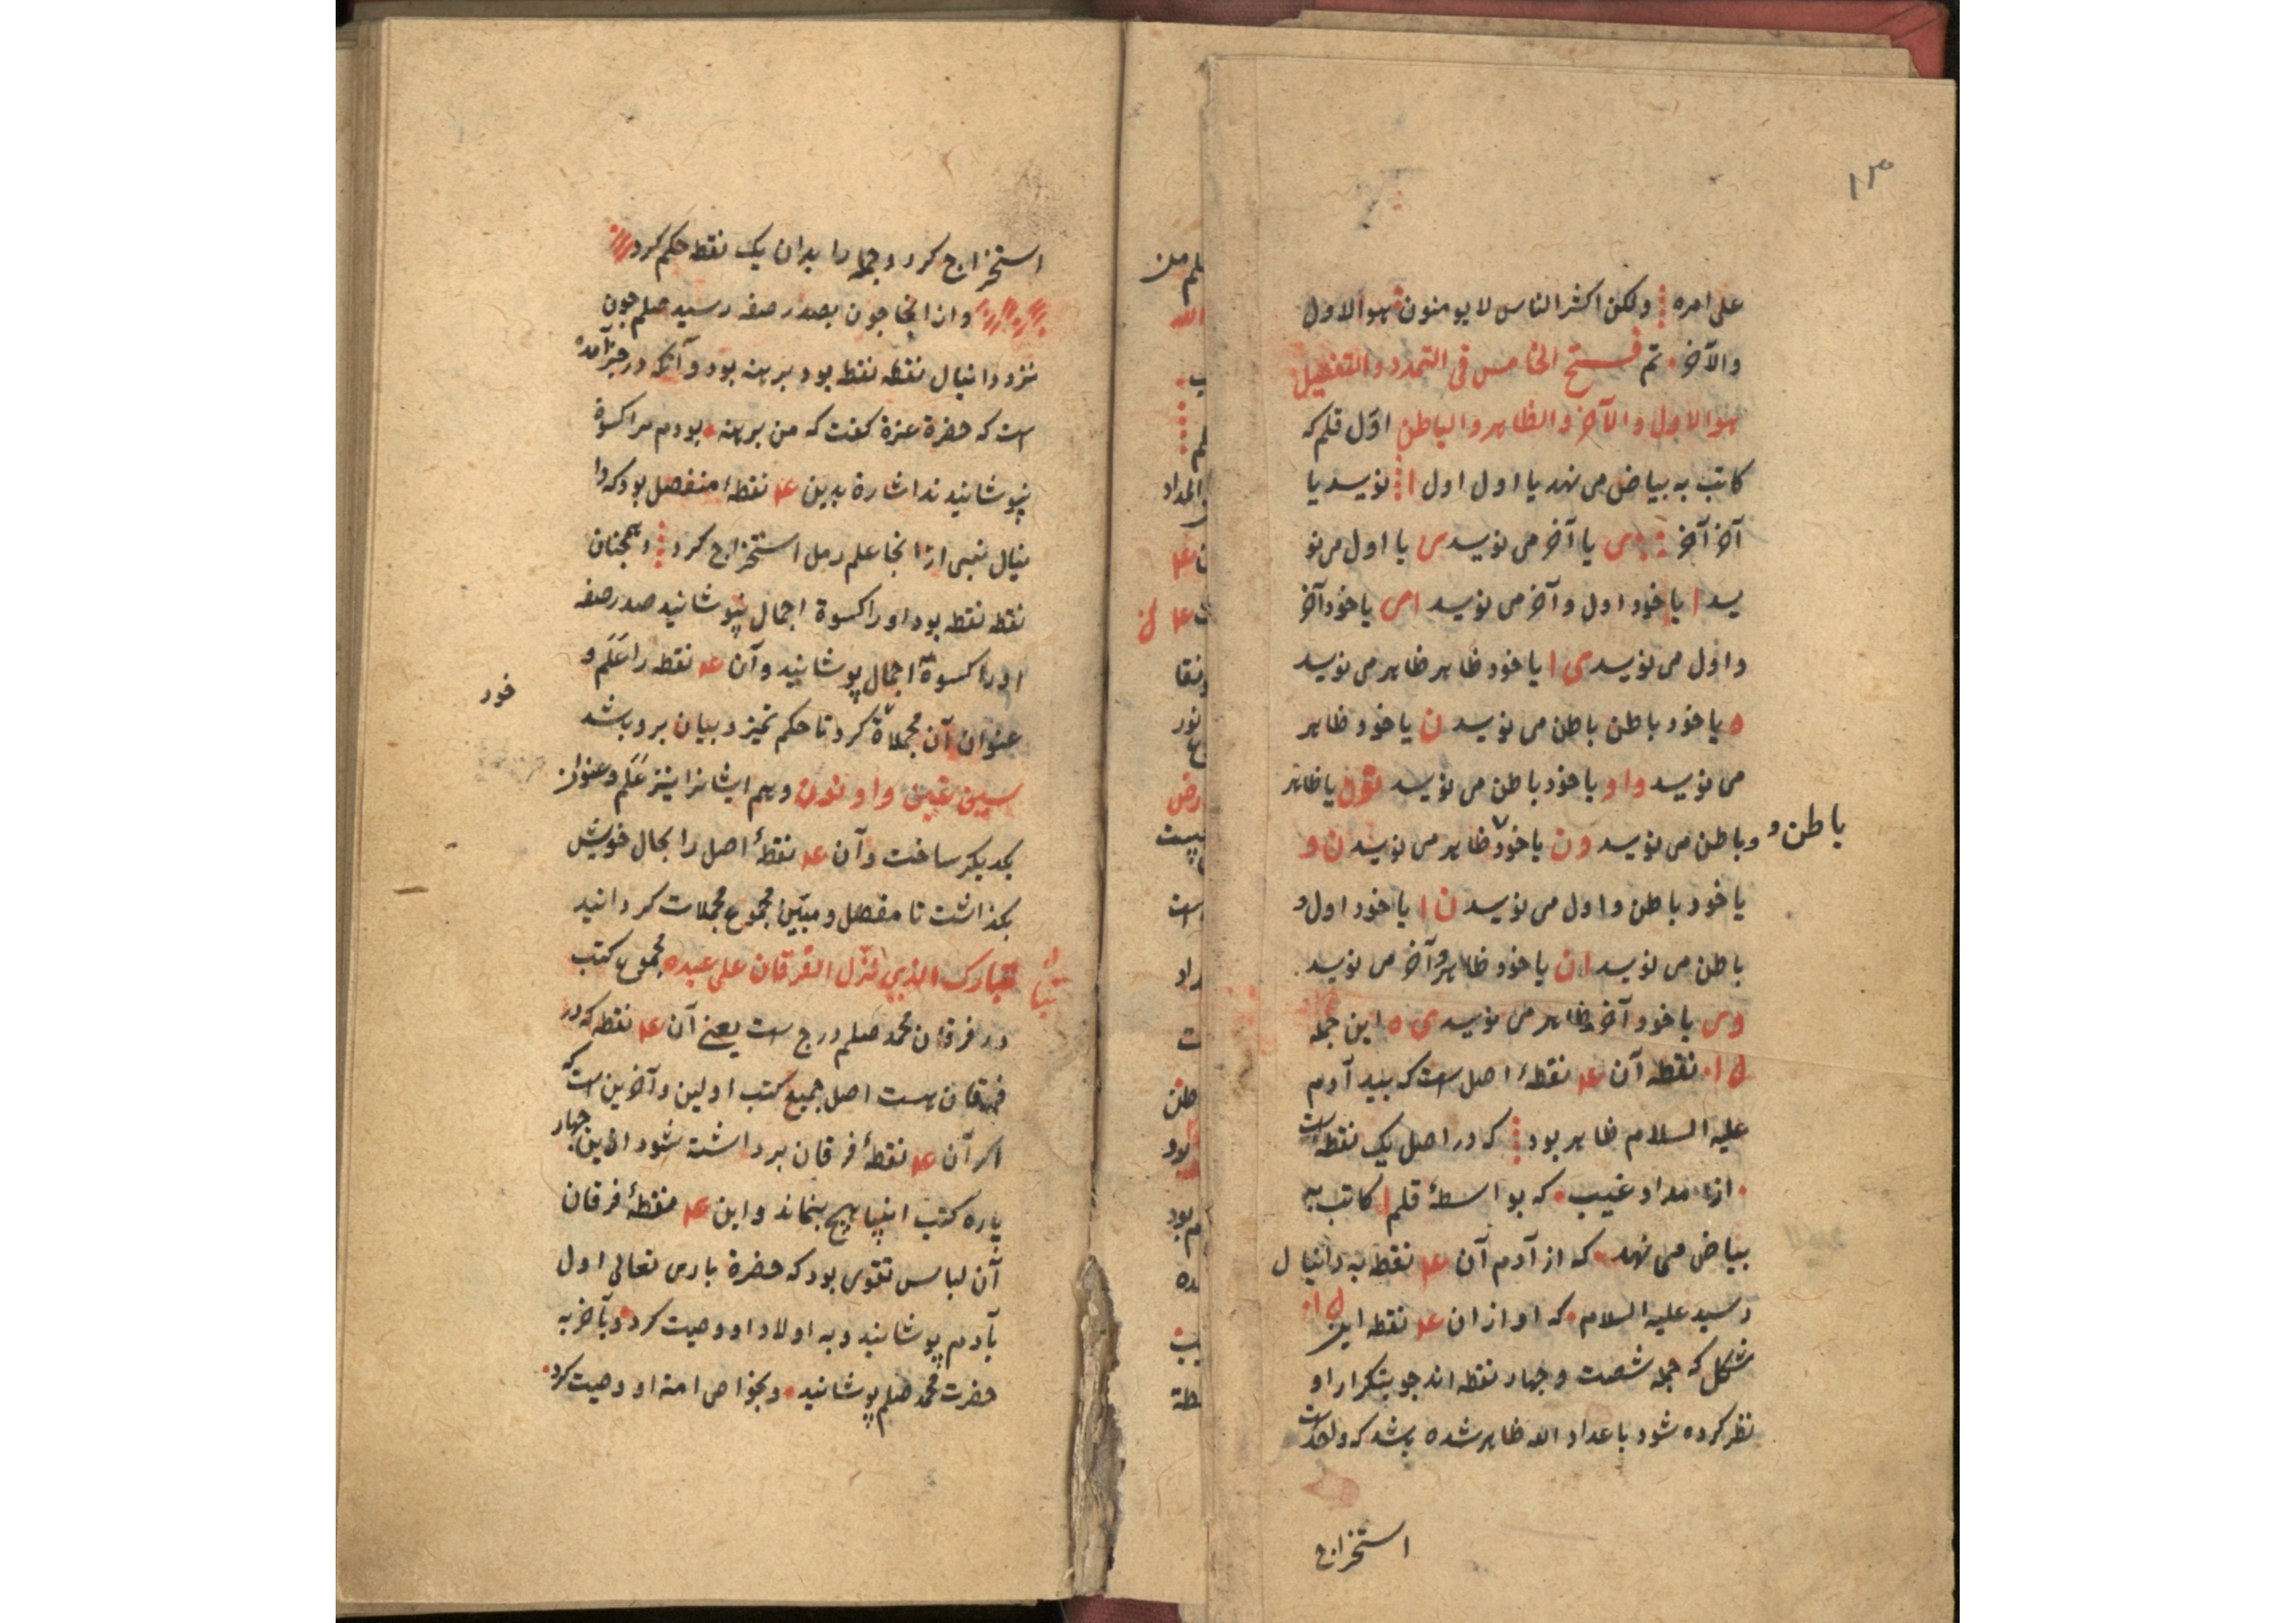 ۱۳
علی امره ولکن اکثر الناس لا یومنون هو الاول
والآخر تم فتح الخامس فی التمدد والتفصیل
هو الاول والآخر والظاهر والباطن اوّل قلم که
کاتب به بیاض می نهد یا اول اول ا نویسد یا
آخر آخر ی یا آخر می نویسد ی یا اول می نو
یسد ا یا خود اول و آخر می نویسد ای یا خود آخر
و اول می نویسد ی ا یا خود ظاهر ظاهر می نویسد
ه یا خود باطن باطن می نویسد ن یا خود ظاهر
می نویسد واو یا خود باطن می نویسد نون یا ظاهر
و باطن می نویسد ون یا خود ظاهر می نویسد ن و
باطن و
یا خود باطن و اول می نویسد ن ا یا خود اول و
باطن می نویسد ان یا خود ظاهر و آخر می نویسد
وی یا خود آخر ظاهر می نویسد ی ه این جمله
نقطه آن عا نقطهٔ اصل است که بید آدم
علیه السلام ظاهر بود که در اصل یک نقطه است
از مداد غیب که بواسطهٔ قلم کاتب به
بیاض می نهد که از آدم آن عا نقطه به دانیال
رسید علیه السلام که او از ان عا نقطه این
شکل که جمله شصت و جهار نقطه اند جو بتکرار او
نظر کرده شود با عداد الله ظاهر شده باشد که واحد است
استخراج
استخراج کرد و جمله را بدان یک نقطه حکم کرد
وان انجا جون بصدر صفه رسید صلم جون
نزد دانیال نقطه نقطه بود برهنه بود و آنکه در خبر آمده
است که حضرة عزة کفت که من برهنه بودم مرا کسوة
بپوشانیدند اشارة بدین عا نقطهٔ منفصل بود که دا
نیال نبی از انجا علم رمل استخراج کرد و همجنان
نقطه نقطه بود او را کسوة اجمال بپوشانید صدر صفه
او را کسوة اجمال پوشانید و آن عا نقطه را عَلَم و
خود
عنوان آن مجملاة کرد تا حکم تمیز و بیان برو باشد
سین عین واو نون و هم ایشانرا نیز عَلَم و عنوان
یکدیکر ساخت و آن عا نقطهٔ اصل را بحال خویش
بکذاشت تا مفصل و مبیّن مجموع مجملات کردانید
تبارک الذی نزّل الفرقان علی عبده مجموع کتب
در فرقان محمد صلم درج است یعنی آن عا نقطه که در
فرقان هست اصل جمیع کتب اولین و آخرین است که
اکر آن عا نقطهٔ فرقان برداشت شود ازین جهار
پاره کتب انبیا هیچ بنماند و این عا نقطهٔ فرقان
آن لباس تقوی بود که حضرة باری تعالی اول
بآدم پوشانید و به اولاد او وصیت کرد و بآخر به
حضرت محمد صلم پوشانید و بخواص امة او وصیت کرد